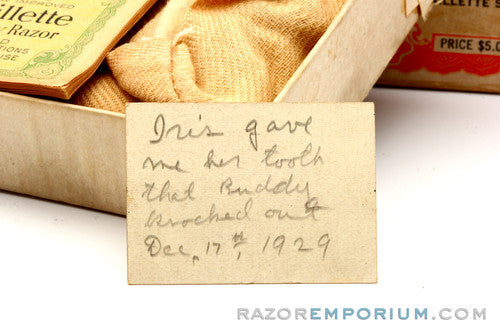 IMPROVED
illette
Razor
TIONS
USE
LLETTE S
PRICE $5.0
Iris gave
me her tooth
that Buddy
knocked out
Dec, 17th, 1929
RAZOREMPORIUM.COM